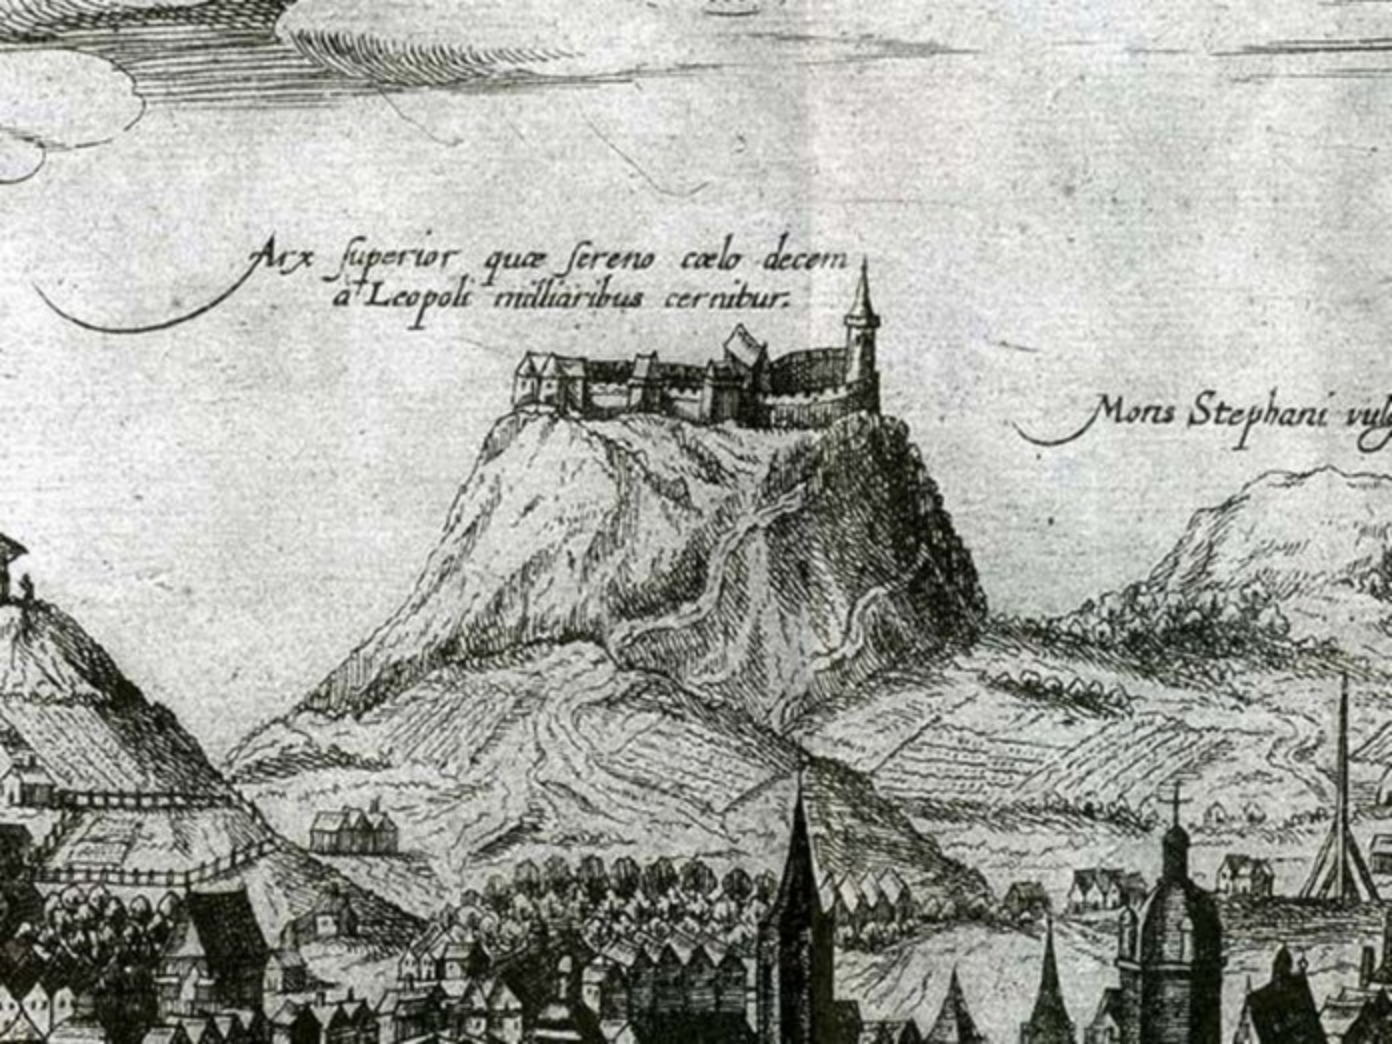 Arx ſuperior quæ ſereno cœlo decem
a Leopoli milliaribus cernitur.
Mons Stephani